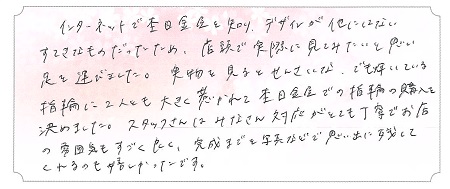 インターネットで杢目金屋を知り、デザインが他にはない
すてきなものだったため、店頭で実際に見てみたいと思い
足を運びました。実物を見るとせんさいな、でも輝いている
指輪に2人とも大きく惹かれて杢目金屋での指輪の購入を
決めました。スタッフさんはみなさん対応がとても丁寧でお店
の雰囲気もすごく良く、完成までを写真などで思い出に残して
くれるのも嬉しかったです。